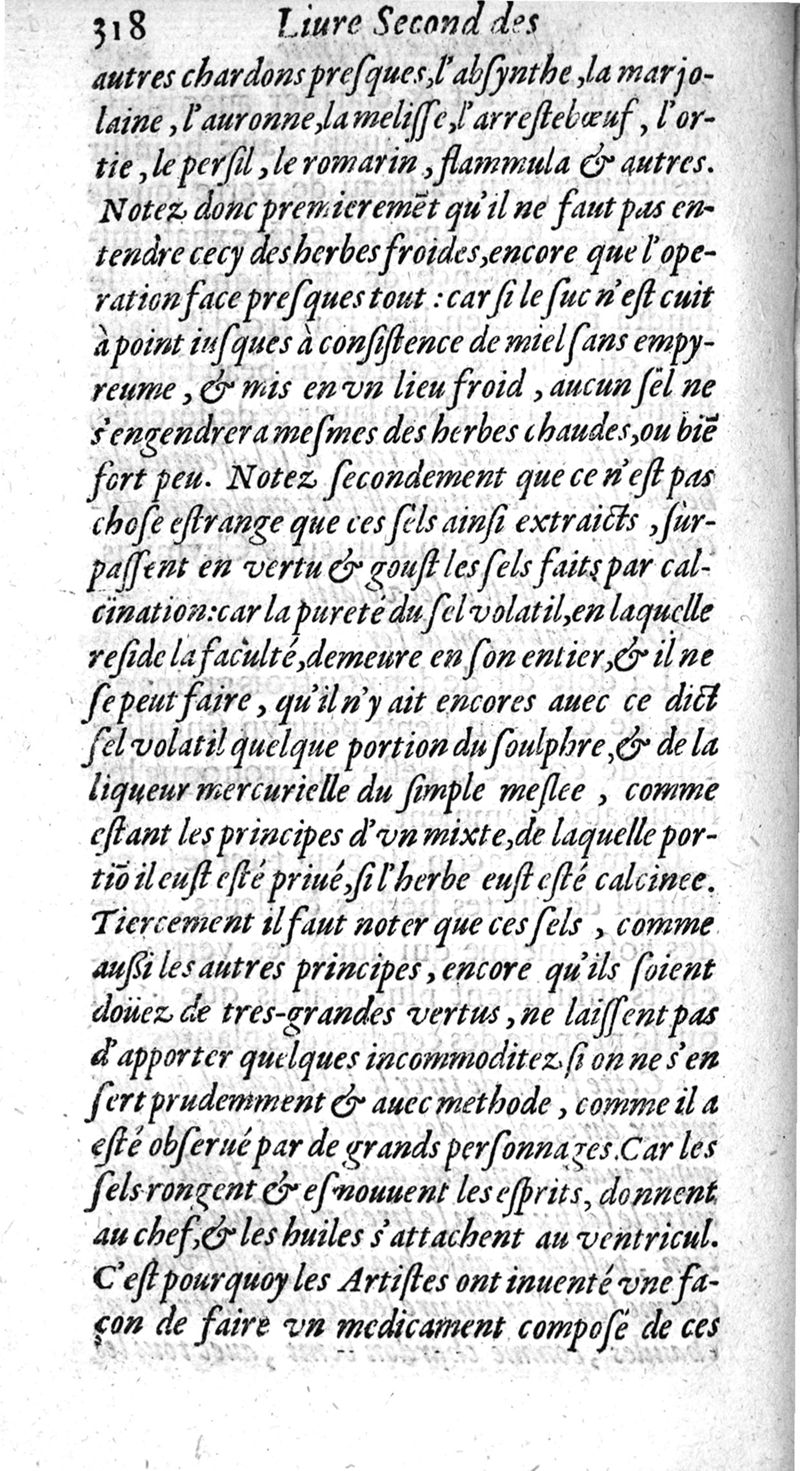 318 Liure Second des
autres chardons preſques, l'abſynthe, la marjo-
laine, l'auronne, la meliſſe, l'arreſtebœuf, l'or-
tie, le perſil, le romarin, flammula & autres.
Notez donc premieremẽt qu'il ne faut pas en-
tendre cecy des herbes froides, encore que l'ope-
ration face preſques tout : car ſi le ſuc n'eſt cuit
à point iuſques à conſiſtence de miel ſans empy-
reume, & mis en vn lieu froid, aucun ſel ne
s'engendrera meſmes des herbes chaudes, ou biẽ
fort peu. Notez ſecondement que ce n'eſt pas
choſe eſtrange que ces ſels ainſi extraicts, ſur-
paſſent en vertu & gouſt les ſels faits par cal-
cination: car la pureté du ſel volatil, en laquelle
reſide la faculté, demeure en ſon entier, & il ne
ſe peut faire, qu'il n'y ait encores auec ce dict
ſel volatil quelque portion du ſoulphre, & de la
liqueur mercurielle du ſimple meſlee, comme
eſtant les principes d'vn mixte, de laquelle por-
tiõ il euſt eſté priué, ſi l'herbe euſt eſté calcinee.
Tiercement il faut noter que ces ſels, comme
auſſi les autres principes, encore qu'ils ſoient
doüez de tres-grandes vertus, ne laiſſent pas
d'apporter quelques incommoditez ſi on ne s'en
ſert prudemment & auec methode, comme il a
eſté obſerué par de grands perſonnages. Car les
ſels rongent & eſmouuent les eſprits, donnent
au chef, & les huiles s'attachent au ventricul.
C'eſt pourquoy les Artiſtes ont inuenté vne fa-
çon de faire vn medicament compoſé de ces